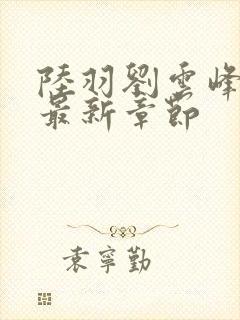 陸羽劉雲峰
最新章節
袁寧勤